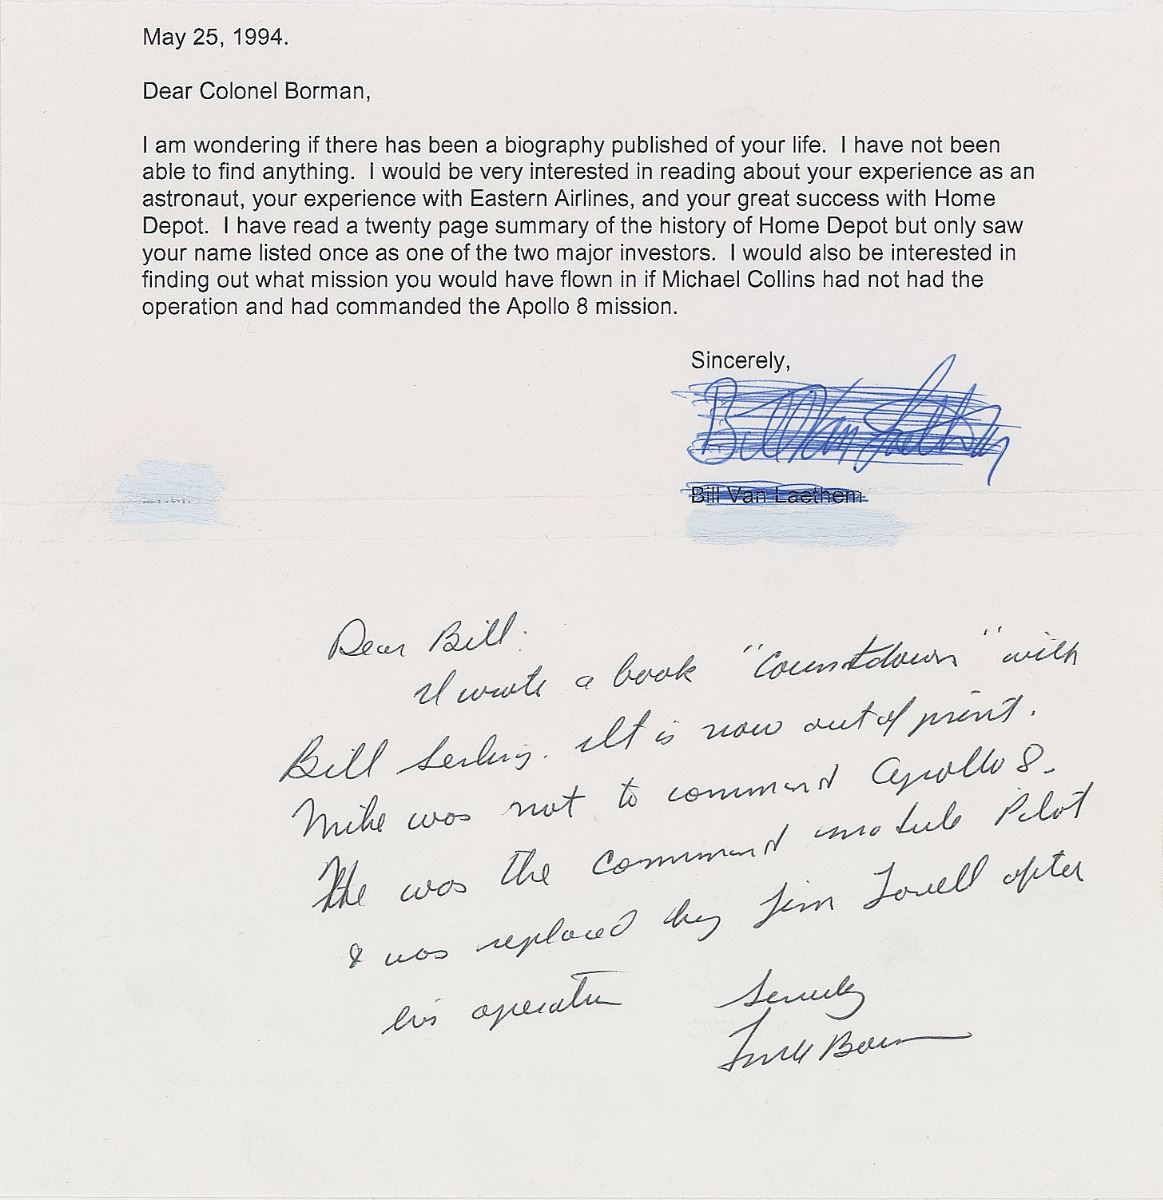 May 25, 1994.
Dear Colonel Borman,
I am wondering if there has been a biography published of your life.  I have not been
able to find anything.  I would be very interested in reading about your experience as an
astronaut, your experience with Eastern Airlines, and your great success with Home
Depot.  I have read a twenty page summary of the history of Home Depot but only saw
your name listed once as one of the two major investors.  I would also be interested in
finding out what mission you would have flown in if Michael Collins had not had the
operation and had commanded the Apollo 8 mission.
Sincerely,
Bill Van Laethem
Bill Van Laethem
Dear Bill:
I wrote a book "Countdown" with
Bill Serling. It is now out of print.
Mike was not to command Apollo 8.
He was the command module Pilot
& was replaced by Jim Lovell after
his operation
Sincerely
Frank Borman